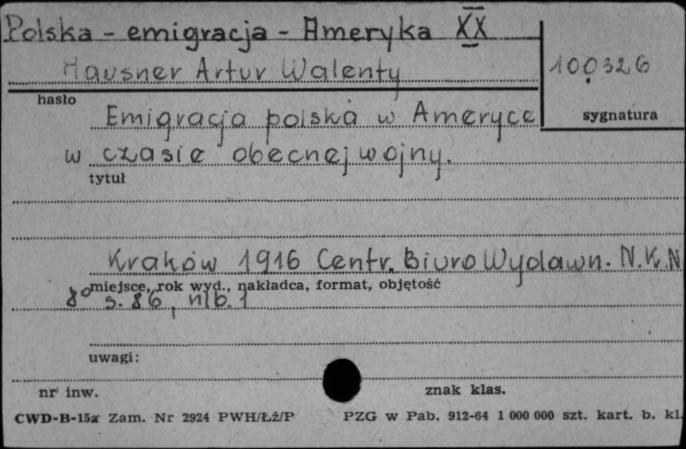 Polska - emigracja - Ameryka XX
Hausner Artur Walenty
100326
hasło
sygnatura
Emigracja polska w Ameryce
w czasie obecnej wojny.
tytuł
Kraków 1916 Centr. Biuro Wydawn. N.K.N
miejsce, rok wyd., nakładca, format, objętość
8° s. 86, nlb. 1
uwagi:
nr inw.
znak klas.
CWD-B-15a Zam. Nr 2924 PWH/Łź/P
PZG w Pab. 912-64 1 000 000 szt. kart. b. kl.